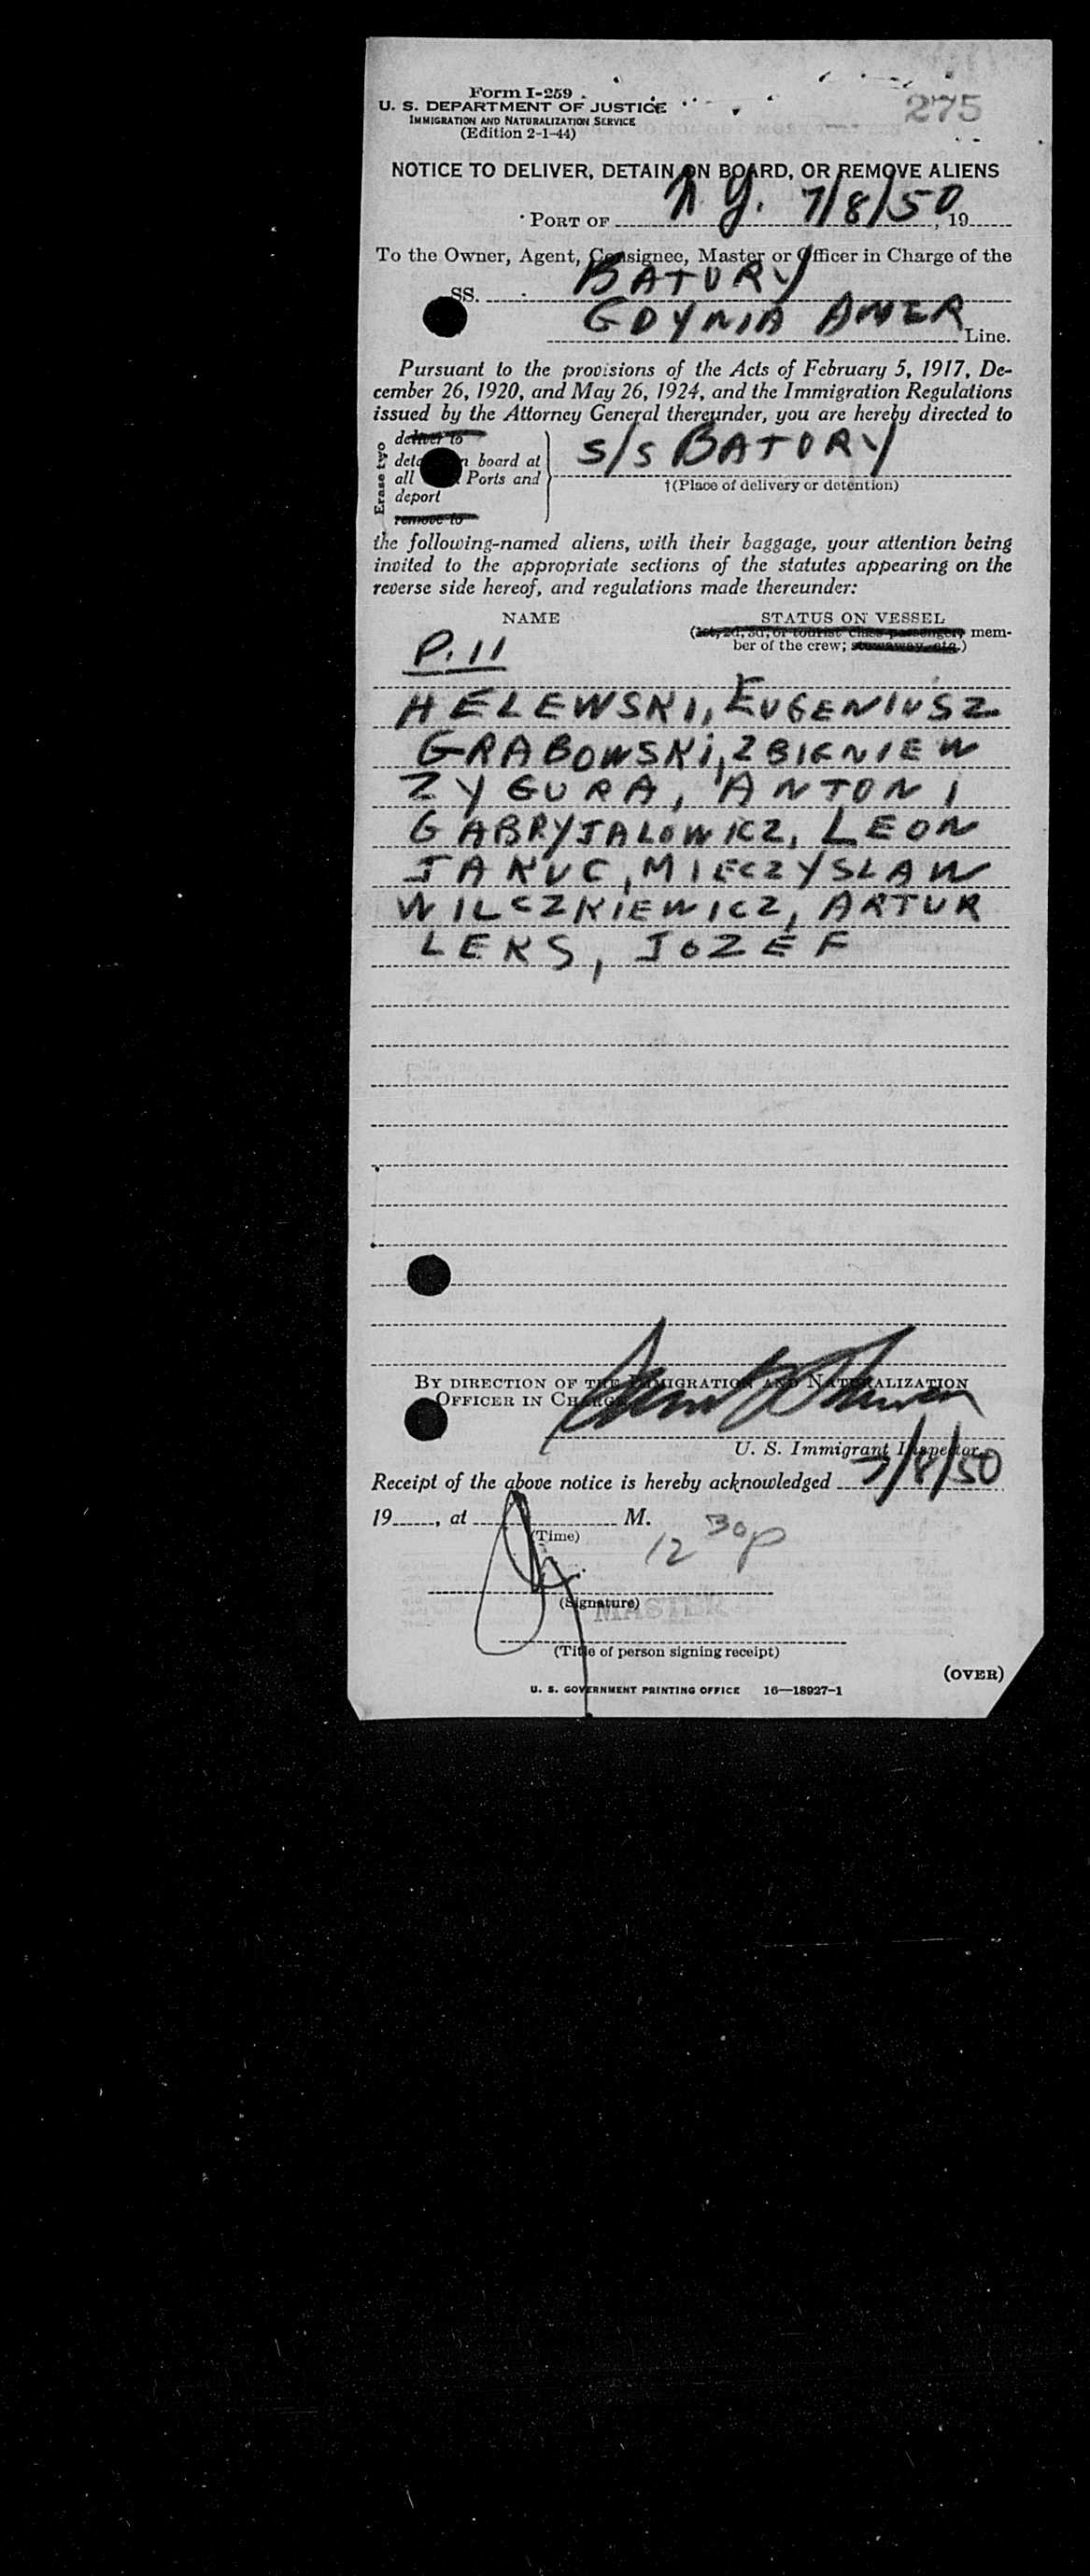 Form I-259
275
U. S. DEPARTMENT OF JUSTICE
IMMIGRATION AND NATURALIZATION SERVICE
(Edition 2-1-44)
NOTICE TO DELIVER, DETAIN ON BOARD, OR REMOVE ALIENS
PORT OF N.Y. 7/8/50, 19
To the Owner, Agent, Consignee, Master or Officer in Charge of the
SS. BATORY
GDYNIA AMER Line.
Pursuant to the provisions of the Acts of February 5, 1917, De-
cember 26, 1920, and May 26, 1924, and the Immigration Regulations
issued by the Attorney General thereunder, you are hereby directed to
Erase two
deliver to
board at
all Ports and
deport
remove to
S/S BATORY
†(Place of delivery or detention)
the following-named aliens, with their baggage, your attention being
invited to the appropriate sections of the statutes appearing on the
reverse side hereof, and regulations made thereunder:
NAME
STATUS ON VESSEL
(1st, 2d, 3d, or tourist class passenger; mem-
ber of the crew; stowaway, etc.)
P. 11
HELEWSKI, EUGENIUSZ
GRABOWSKI, ZBIGNIEW
ZYGURA, ANTONI
GABRYJALOWICZ, LEON
JAKUC, MIECZYSLAW
WILCZKIEWICZ, ARTUR
LEKS, JOZEF
BY DIRECTION OF THE IMMIGRATION AND NATURALIZATION
OFFICER IN CHARGE
U. S. Immigrant Inspector.
Receipt of the above notice is hereby acknowledged 7/8/50
19, at M.
(Time)
12 30p
(Signature)
MASTER
(Title of person signing receipt)
(OVER)
U. S. GOVERNMENT PRINTING OFFICE 16—18927-1